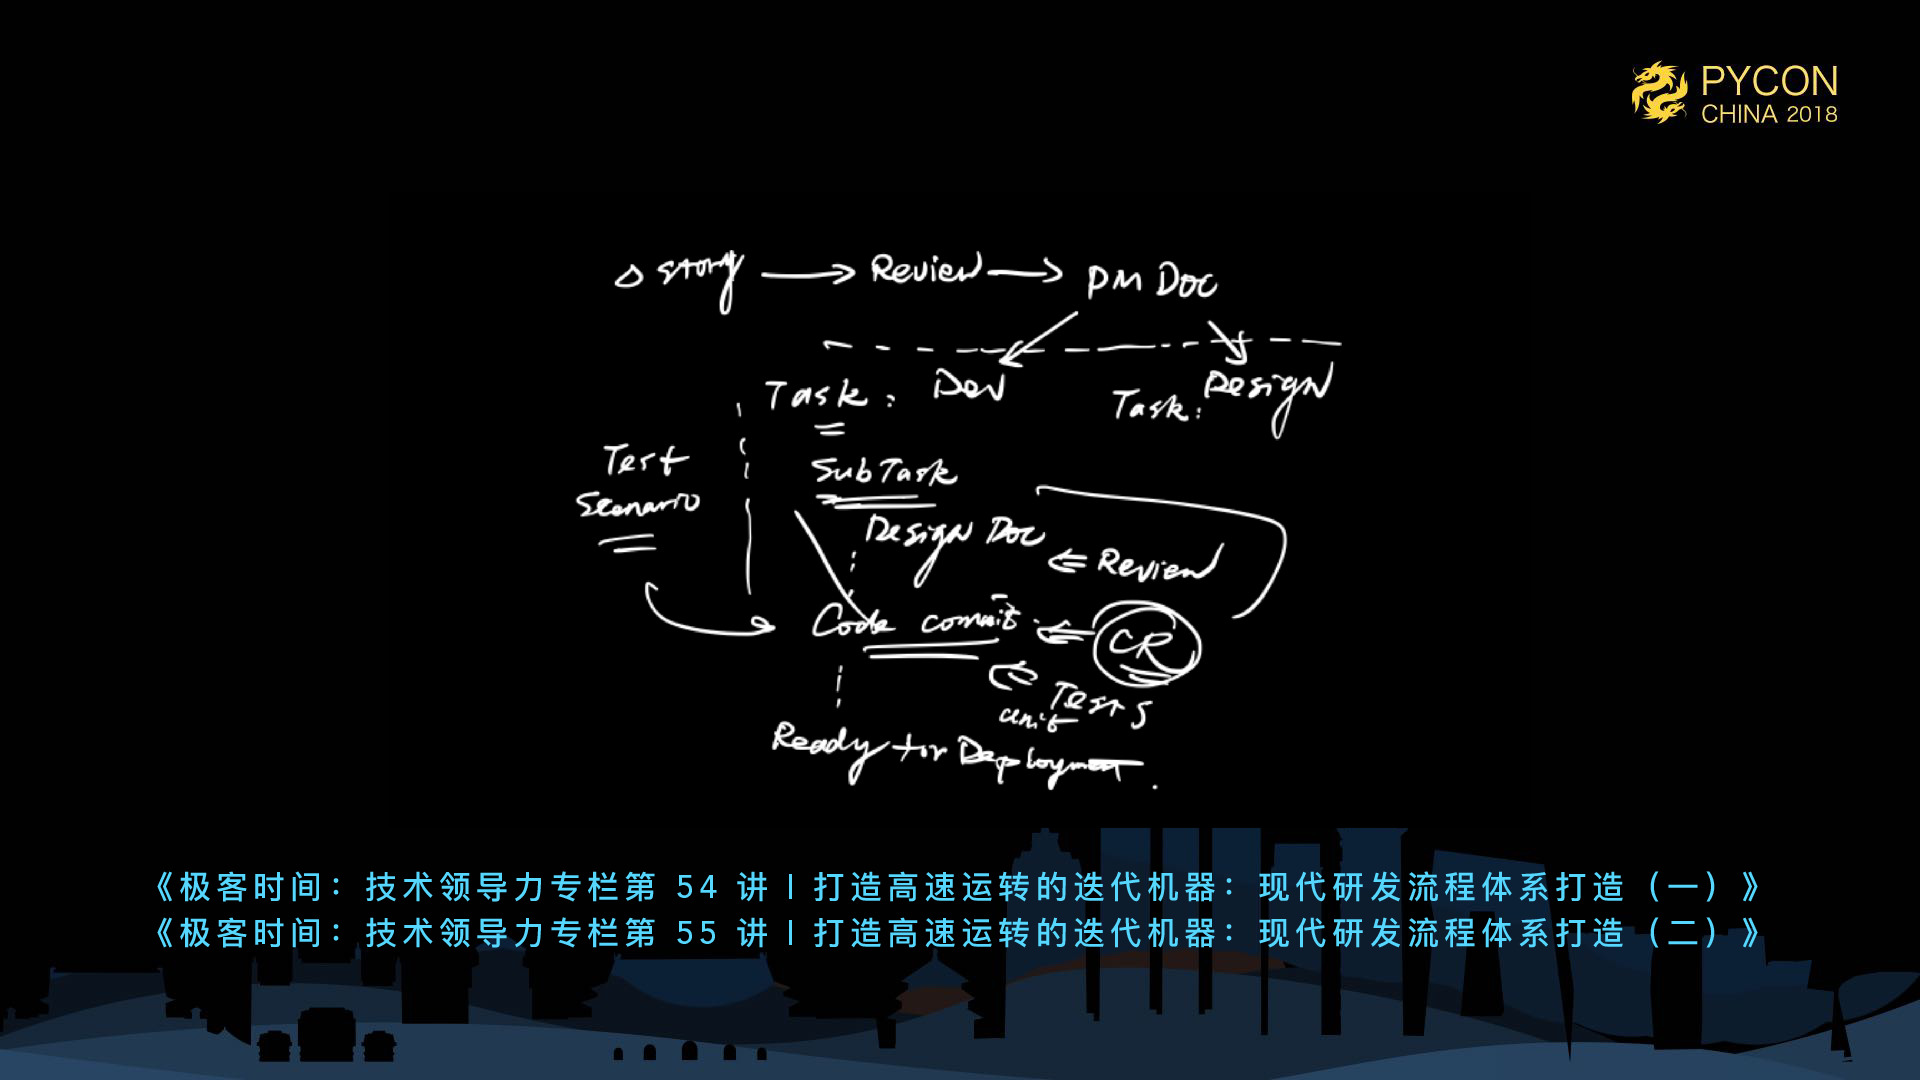 PYCON
CHINA 2018
story → Review → PM Doc
Task: Dev
Task: Design
Test
Scenario
SubTask
Design Doc
Review
Code commit
CR
Tests
unit
Ready for Deployment.
《极客时间：技术领导力专栏第 54 讲 | 打造高速运转的迭代机器：现代研发流程体系打造（一）》
《极客时间：技术领导力专栏第 55 讲 | 打造高速运转的迭代机器：现代研发流程体系打造（二）》